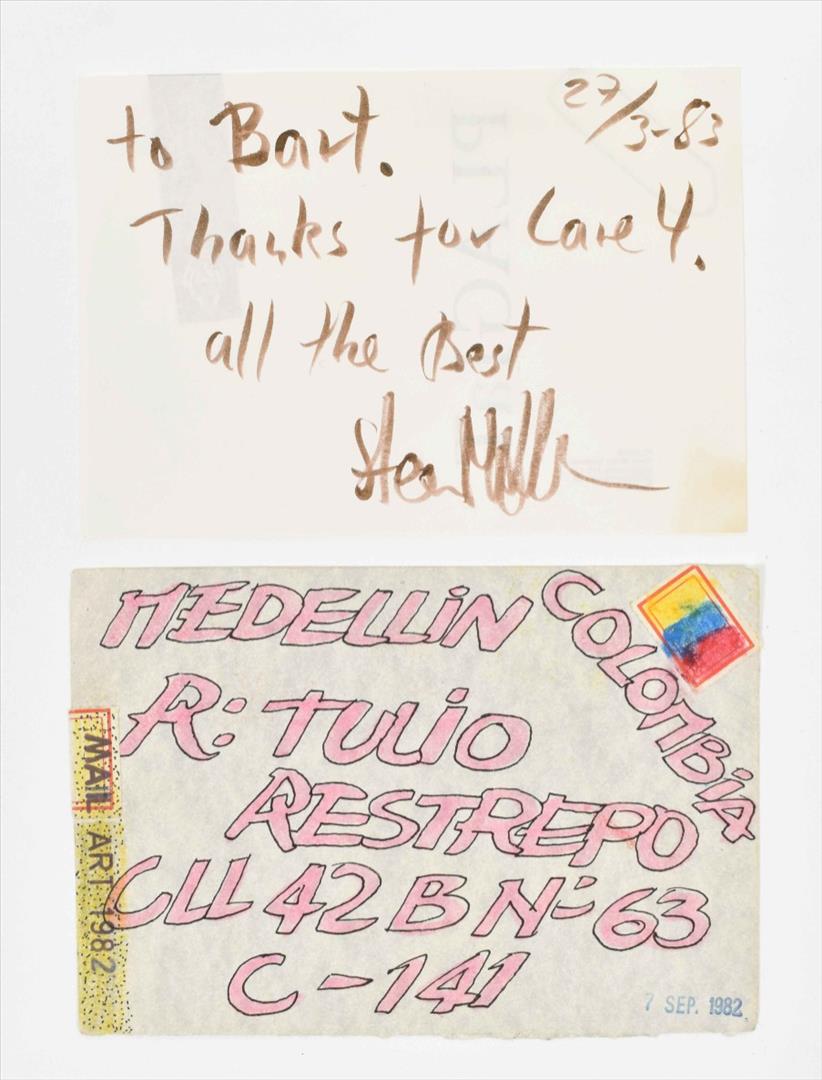 27/3-83
to Bart.
Thanks for Care 4.
all the Best
MEDELLiN
COLOMBiA
R: TULiO
RESTREPO
CLL 42 B Nº 63
C - 141
MAIL ART 1982
7 SEP. 1982